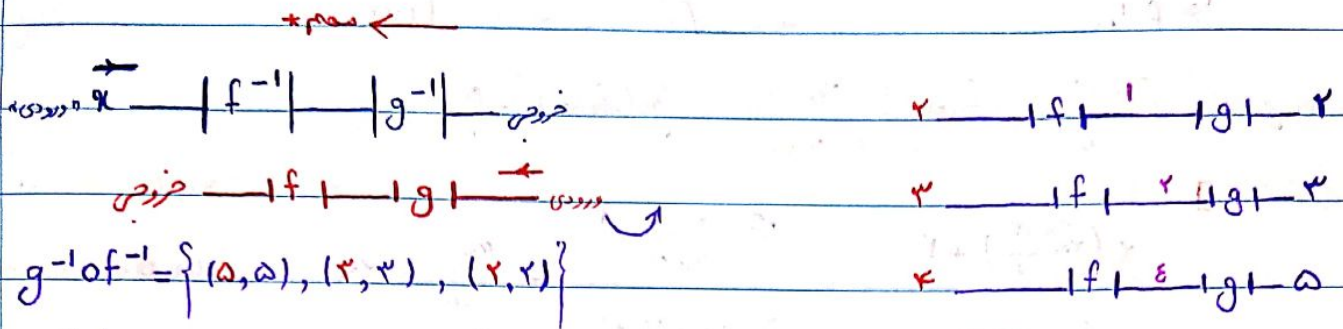 ← مهم *
«ورودی» x —|f⁻¹|—|g⁻¹|— خروجی
خروجی —|f|—|g|— ورودی
g⁻¹of⁻¹ = {(۵,۵), (۳,۳), (۲,۲)}
۲ —|f|— ۱ —|g|— ۲
۳ —|f|— ۲ —|g|— ۳
۴ —|f|— ٤ —|g|— ۵